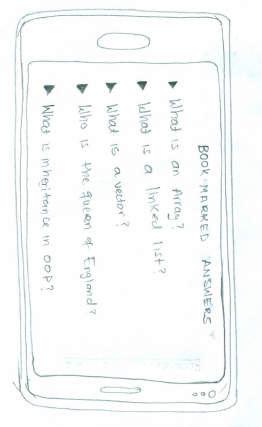 BOOK MARKED ANSWERS
▶ What is an Array?
▶ What is a linked list?
▶ What is a vector?
▶ Who is the queen of England?
▶ What is inheritance in OOP?